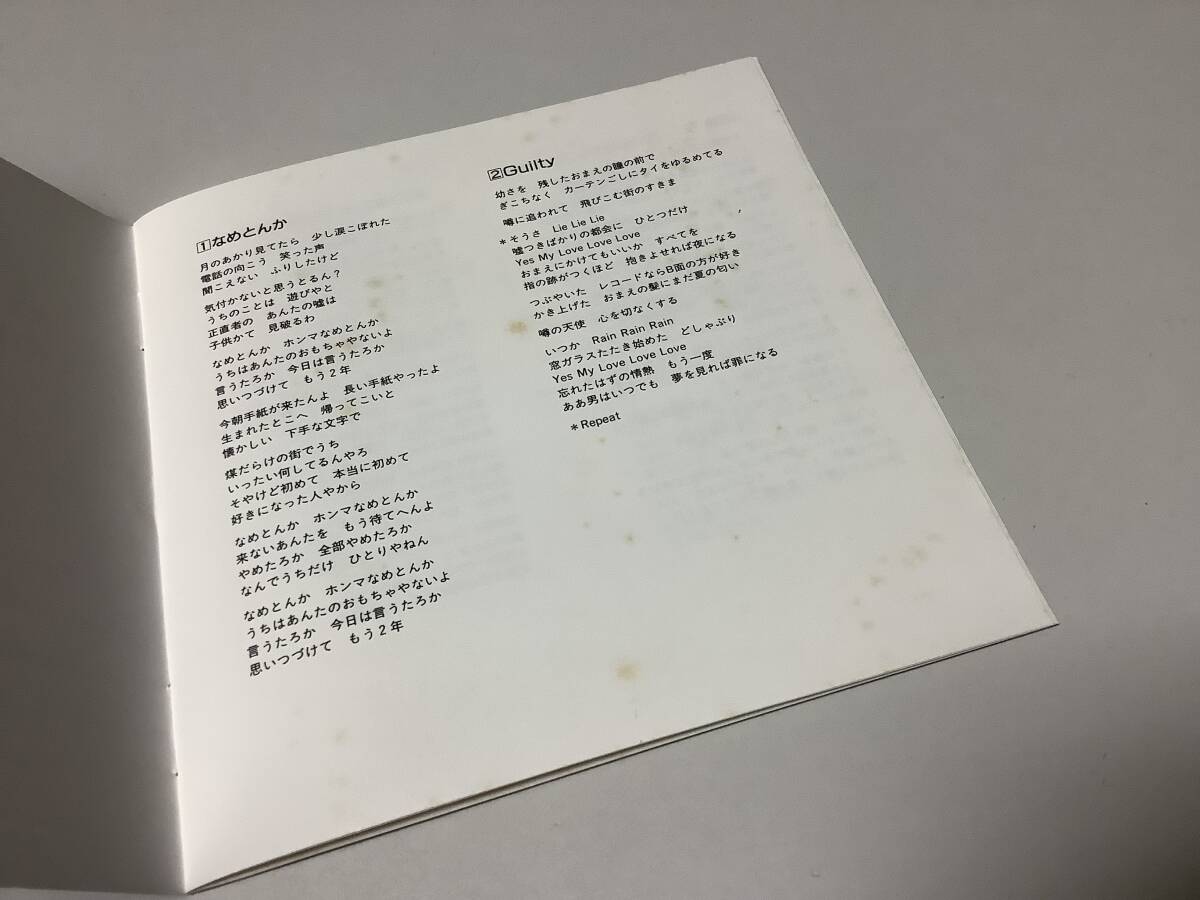 1なめとんか
月のあかり見てたら　少し涙こぼれた
電話の向こう　笑った声
聞こえない　ふりしたけど
気付かないと思うとるん?
うちのことは　遊びやと
正直者の　あんたの嘘は
子供かて　見破るわ
なめとんか　ホンマなめとんか
うちはあんたのおもちゃやないよ
言うたろか　今日は言うたろか
思いつづけて　もう2年
今朝手紙が来たんよ　長い手紙やったよ
生まれたとこへ　帰ってこいと
懐かしい　下手な文字で
煤だらけの街でうち
いったい何してるんやろ
そやけど初めて　本当に初めて
好きになった人やから
なめとんか　ホンマなめとんか
来ないあんたを　もう待てへんよ
やめたろか　全部やめたろか
なんでうちだけ　ひとりやねん
なめとんか　ホンマなめとんか
うちはあんたのおもちゃやないよ
言うたろか　今日は言うたろか
思いつづけて　もう2年
2Guilty
幼さを　残したおまえの瞳の前で
ぎこちなく　カーテンごしにタイをゆるめてる
噂に追われて　飛びこむ街のすきま
*そうさ　Lie Lie Lie
嘘つきばかりの都会に　ひとつだけ
Yes My Love Love Love
おまえにかけてもいいか　すべてを
指の跡がつくほど　抱きよせれば夜になる
つぶやいた　レコードならB面の方が好き
かき上げた　おまえの髪にまだ夏の匂い
噂の天使　心を切なくする
いつか　Rain Rain Rain
窓ガラスたたき始めた　どしゃぶり
Yes My Love Love Love
忘れたはずの情熱　もう一度
ああ男はいつでも　夢を見れば罪になる
*Repeat